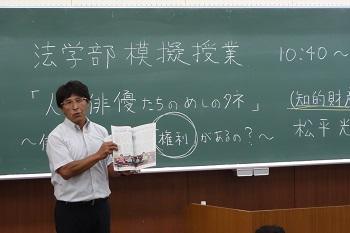 法学部模擬授業 10:40～
「人 俳優たちのめしのタネ」 (知的財産
～ 権利があるの?～ 松平光